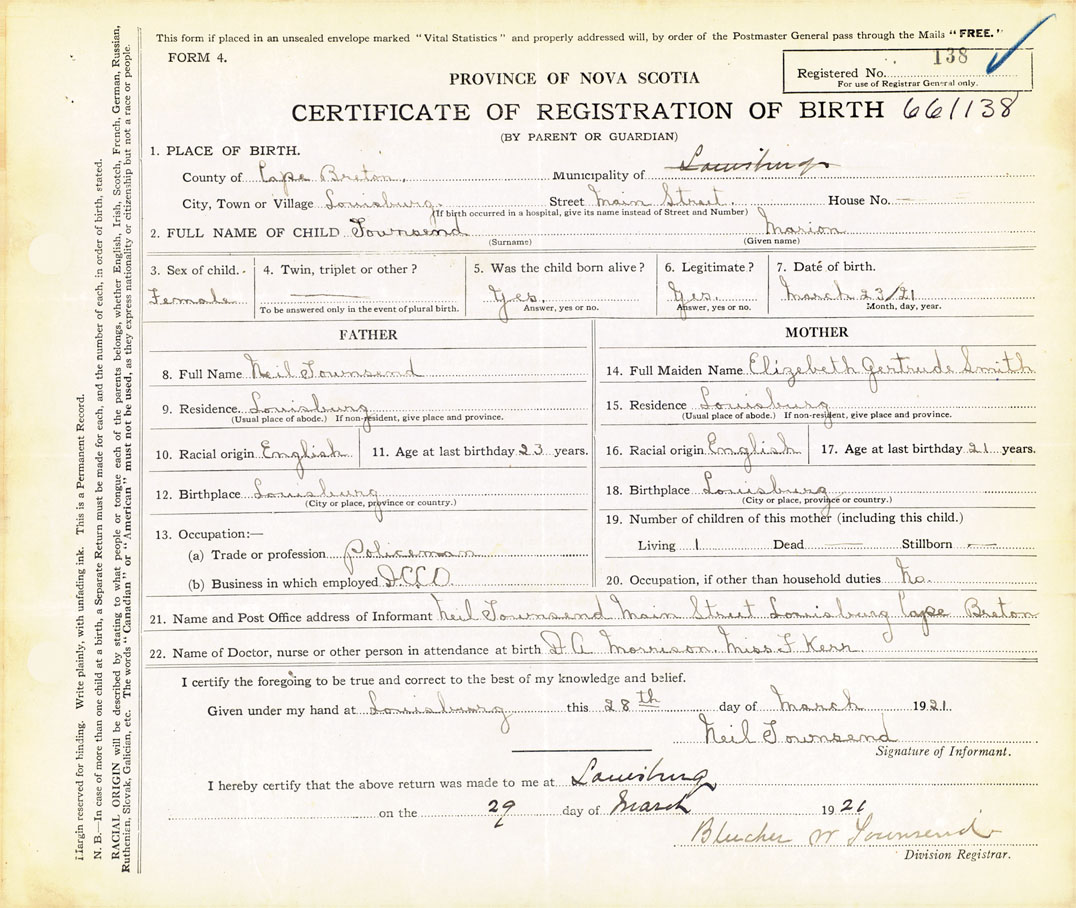 This form if placed in an unsealed envelope marked "Vital Statistics" and properly addressed will, by order of the Postmaster General pass through the Mails "FREE."
FORM 4.
138
Registered No.
For use of Registrar General only.
PROVINCE OF NOVA SCOTIA
CERTIFICATE OF REGISTRATION OF BIRTH 661138
(BY PARENT OR GUARDIAN)
1. PLACE OF BIRTH.
County of Cape Breton. Municipality of Louisburg
City, Town or Village Louisburg. Street Main Street. House No. —
(If birth occurred in a hospital, give its name instead of Street and Number)
2. FULL NAME OF CHILD Townsend Marion
(Surname) (Given name)
3. Sex of child. Female
4. Twin, triplet or other? —
To be answered only in the event of plural birth.
5. Was the child born alive? Yes.
Answer, yes or no.
6. Legitimate? Yes.
Answer, yes or no.
7. Date of birth. March 23/21
Month, day, year.
FATHER
8. Full Name Neil Townsend
9. Residence. Louisburg
(Usual place of abode.) If non-resident, give place and province.
10. Racial origin English 11. Age at last birthday 23 years.
12. Birthplace Louisburg
(City or place, province or country.)
13. Occupation:—
(a) Trade or profession Policeman
(b) Business in which employed
MOTHER
14. Full Maiden Name Elizebeth Gertrude Smith
15. Residence Louisburg
(Usual place of abode.) If non-resident, give place and province.
16. Racial origin English 17. Age at last birthday 21 years.
18. Birthplace Louisburg
(City or place, province or country.)
19. Number of children of this mother (including this child.)
Living 1 Dead — Stillborn —
20. Occupation, if other than household duties No.
21. Name and Post Office address of Informant Neil Townsend Main Street Louisburg Cape Breton
22. Name of Doctor, nurse or other person in attendance at birth D A Morrison. Miss F Kerr
I certify the foregoing to be true and correct to the best of my knowledge and belief.
Given under my hand at Louisburg this 28th day of March 1921
Neil Townsend
Signature of Informant.
I hereby certify that the above return was made to me at Louisburg
on the 29 day of March 1921
Blucher W Townsend
Division Registrar.
Margin reserved for binding. Write plainly, with unfading ink. This is a Permanent Record.
N. B.—In case of more than one child at a birth, a Separate Return must be made for each, and the number of each, in order of birth, stated.
RACIAL ORIGIN will be described by stating to what people or tongue each of the parents belongs, whether English, Irish, Scotch, French, German, Russian,
Ruthenian, Slovak, Galician, etc. The words "Canadian" or "American" must not be used, as they express nationality or citizenship but not a race or people.